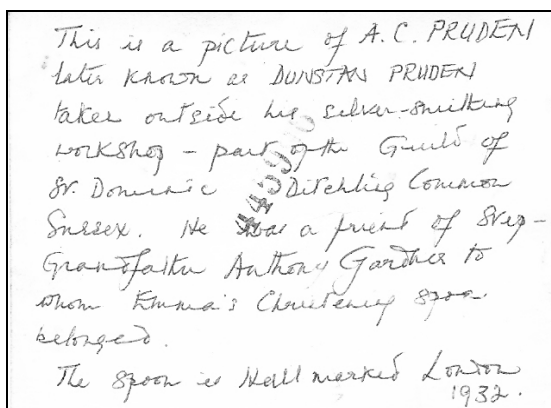 This is a picture of A.C. PRUDEN
later known as DUNSTAN PRUDEN
taken outside his silver-smithing
workshop - part of the Guild of
St. Dominic Ditchling Common
Sussex. He was a friend of Step-
Grandfather Anthony Gardner to
whom Emma's Christening spoon
belonged.
The spoon is Hallmarked London
1932.